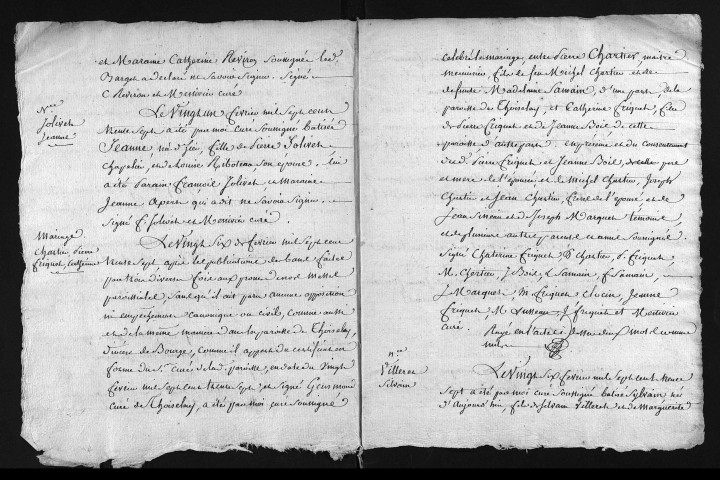 et Maraine Catherine Reviron soussignée led.
Barget a declaré ne savoir signer. Signé
C Reviron et Monivin curé
N.ce
Jolivet
Jeanne
Le Vingt un fevrier mil sept cent
trente sept a été par moi curé soussigné batisée
Jeanne née d'hier, fille de Pierre Jolivet
Chapelier, et de Louise son epouse. lui
a été parain Francois Jolivet et Maraine
Jeanne qui a dit ne savoir signer.
Signé F. Jolivet et Monivin curé.
Mariage
Chartier, Pierre
Criquet, Catherine
Le Vingt Six de fevrier mil sept cent
trente sept après les publications de bans faites
par trois diverses fois aux prones de nos messes
paroissiales, sans qu'il ait paru aucune opposition
ni empeschement canonique ou civil, comme aussi
et de la même maniere dans la paroisse de Thoiselay,
diocèse de Bourge, comme il appert du certificat en
forme du S. curé de lad. paroisse, en date du Vingt
fevrier mil sept cent trente sept, et signé Germond
curé de Thoiselay, a été par moi curé soussigné
celebré le mariage, entre Pierre Chartier, maitre
menuisier, fils de feu Michel Chartier et de
defunte Madelaine Samain, d'une part, de la
paroisse de Thoiselay, et Catherine Criquet, fille
de Pierre Criquet et de Jeanne Boil de cette
paroisse d'autre part. en presence et du consentement
de d. Pierre Criquet et Jeanne Boil, pere
et mere de l'épouse et de Michel Chartier, Joseph
Chartier et Jean Chartier, frere de l'epoux et de
Jean et de Joseph Marquet temoins,
et de plusieurs autres parens et amis soussignés.
Signé Chaterine Criquet P Chartier, P. Criquet,
M. Chartier, J Boil, F Samain, F Samain,
J Marquet, M Criquet, Jeanne
Criquet M Lusseau, J Criquet et Monivin
curé. Rayé en l'acte ci dessus deux mots comme
nuls
N.ce
Villeret
Silvain
Le Vingt Six fevrier mil sept cent trente
sept a été par moi curé soussigné batisé Sylvain né
d'aujourd'hui, fils de Silvain Villeret et de Marguerite